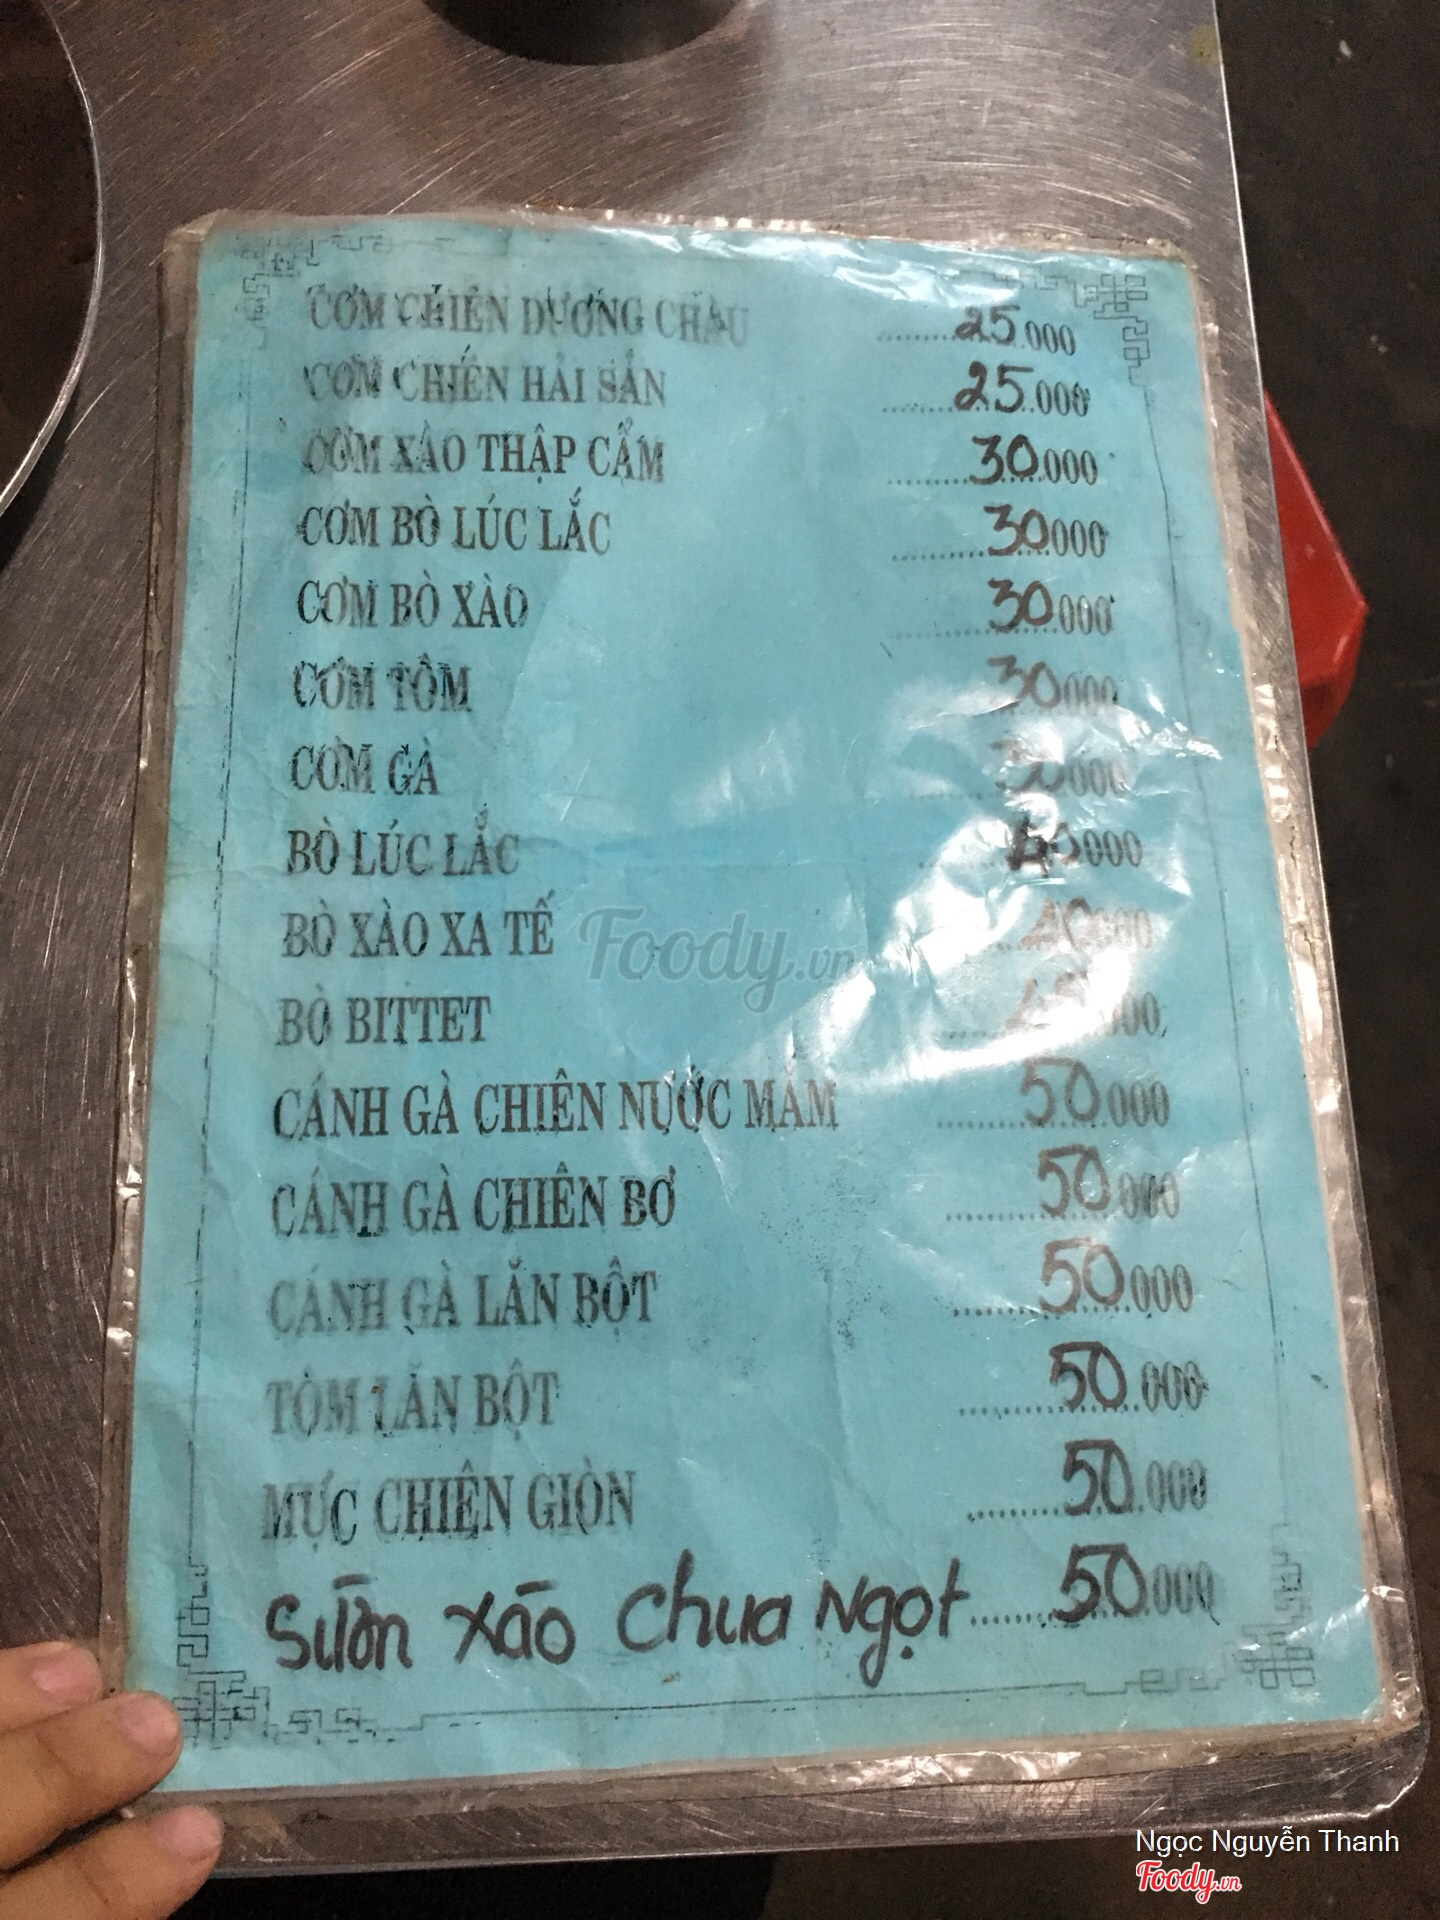 CƠM CHIÊN DƯƠNG CHÂU ........25.000
CƠM CHIÊN HẢI SẢN ........25.000
CƠM XÀO THẬP CẨM ........30.000
CƠM BÒ LÚC LẮC ........30.000
CƠM BÒ XÀO ........30.000
CƠM TÔM 30.000
CƠM GÀ 30.000
BÒ LÚC LẮC 40.000
BÒ XÀO XA TẾ 40.000
BÒ BITTET
CÁNH GÀ CHIÊN NƯỚC MẮM ........50.000
CÁNH GÀ CHIÊN BƠ ........50.000
CÁNH GÀ LĂN BỘT ........50.000
TÔM LĂN BỘT ........50.000
MỰC CHIÊN GIÒN ........50.000
Sườn xào chua Ngọt ........50.000
Foody.vn
Ngọc Nguyễn Thanh
Foody.vn